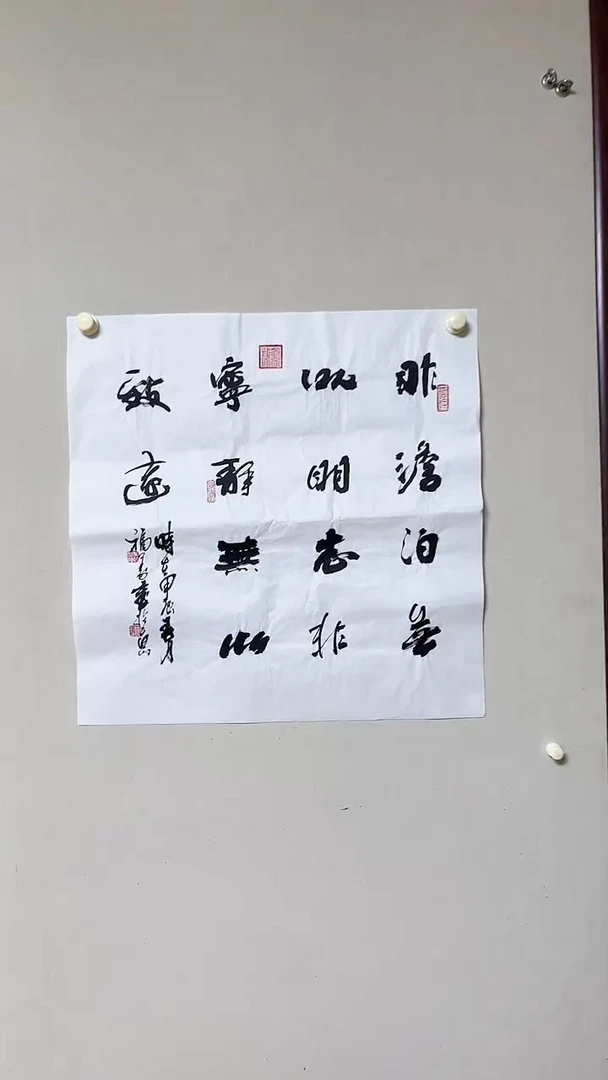 非澹泊無
以明志非
寧靜無以
致遠
時在甲辰月
福書於山